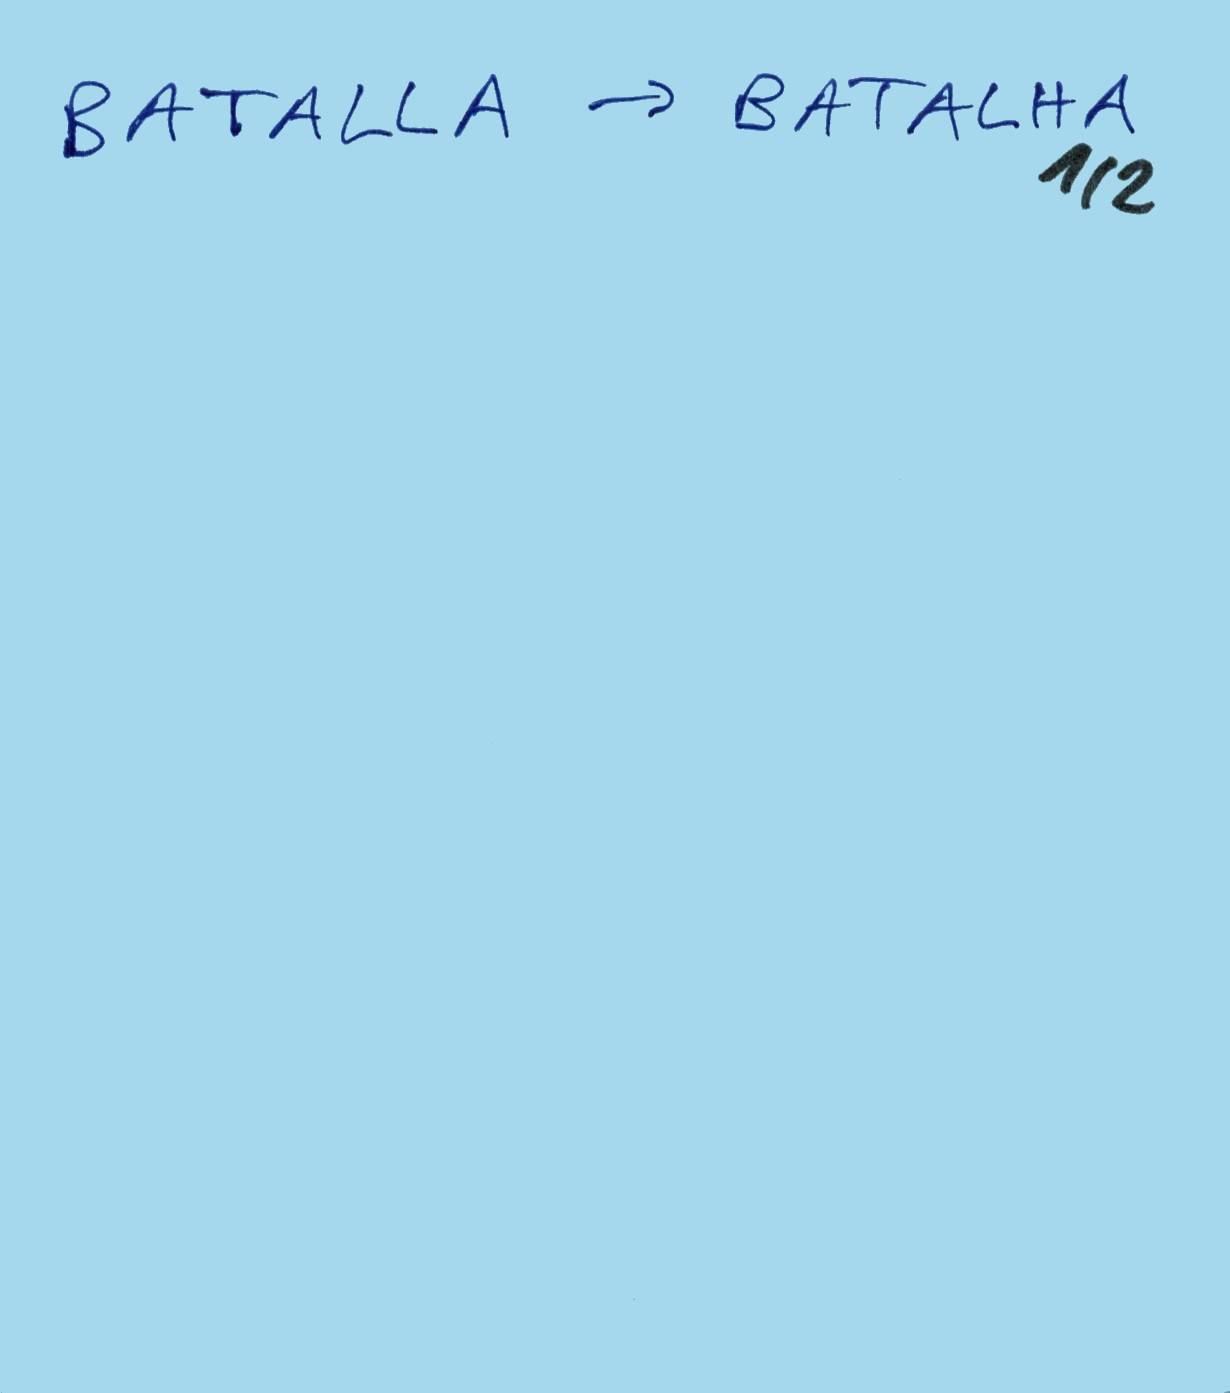 BATALLA → BATALHA
1/2